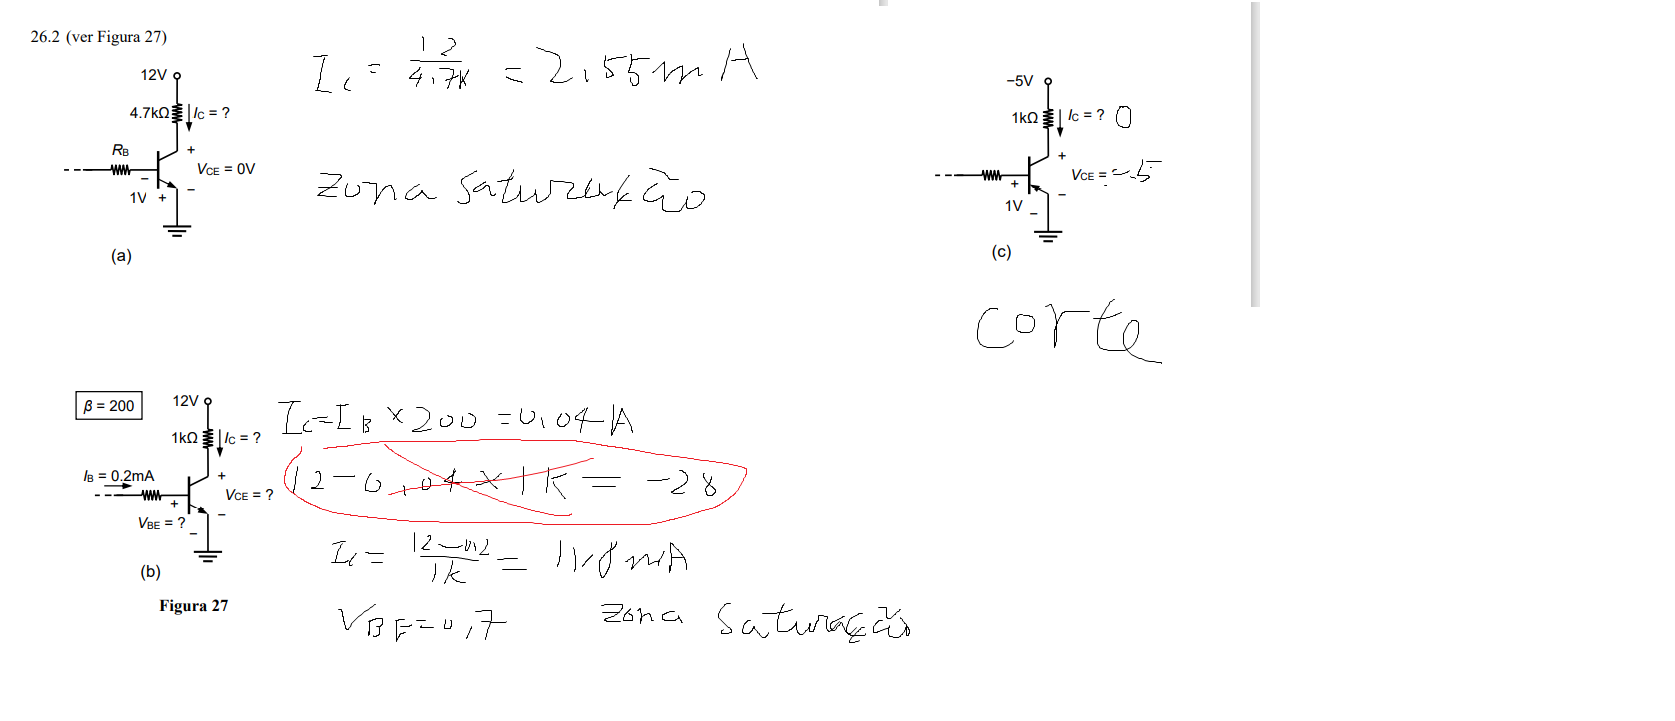 26.2 (ver Figura 27)
12V
4.7kΩ
IC = ?
RB
+
VCE = 0V
−
1V +
−
(a)
Ic = 12/4.7K = 2.55mA
Zona Saturação
−5V
1kΩ
IC = ? 0
+
VCE = -5
+
−
1V
−
(c)
corte
β = 200
12V
1kΩ
IC = ?
IB = 0.2mA
+
VCE = ?
+
−
VBE = ?
−
(b)
Figura 27
Ic=IB×200=0.04A
12-0.04×1k=-28
Ic= 12-0.2/1k = 11.8mA
VBE=0,7 zona Saturação